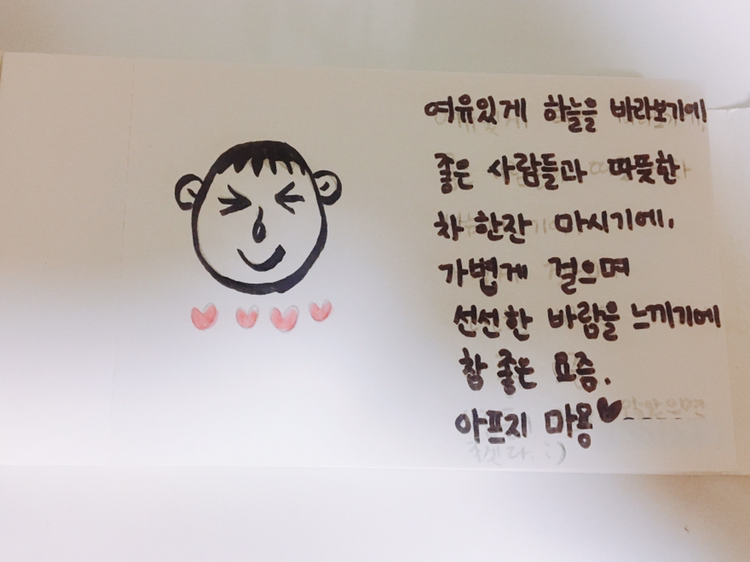 여유있게 하늘을 바라보기에!
좋은 사람들과 따뜻한
차 한잔 마시기에,
가볍게 걸으며
선선한 바람을 느끼기에
참 좋은 요즘.
아프지 마용